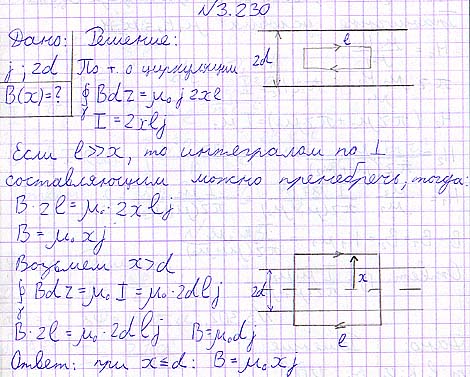 №3.230
Дано: Решение:
j; 2d По т. о циркуляции
B(x)=? ∮ Bdr = μ₀ j 2xl
γ
I = 2xlj
2d l
Если l≫x, то интегралом по ⊥
составляющим можно пренебречь, тогда:
B·2l = μ₀·2xlj
B = μ₀xj
Возьмем x>d
∮ Bdr = μ₀ I = μ₀·2dlj
γ
B·2l = μ₀·2dlj B=μ₀dj
2d x
l
Ответ: при x≤d: B = μ₀xj